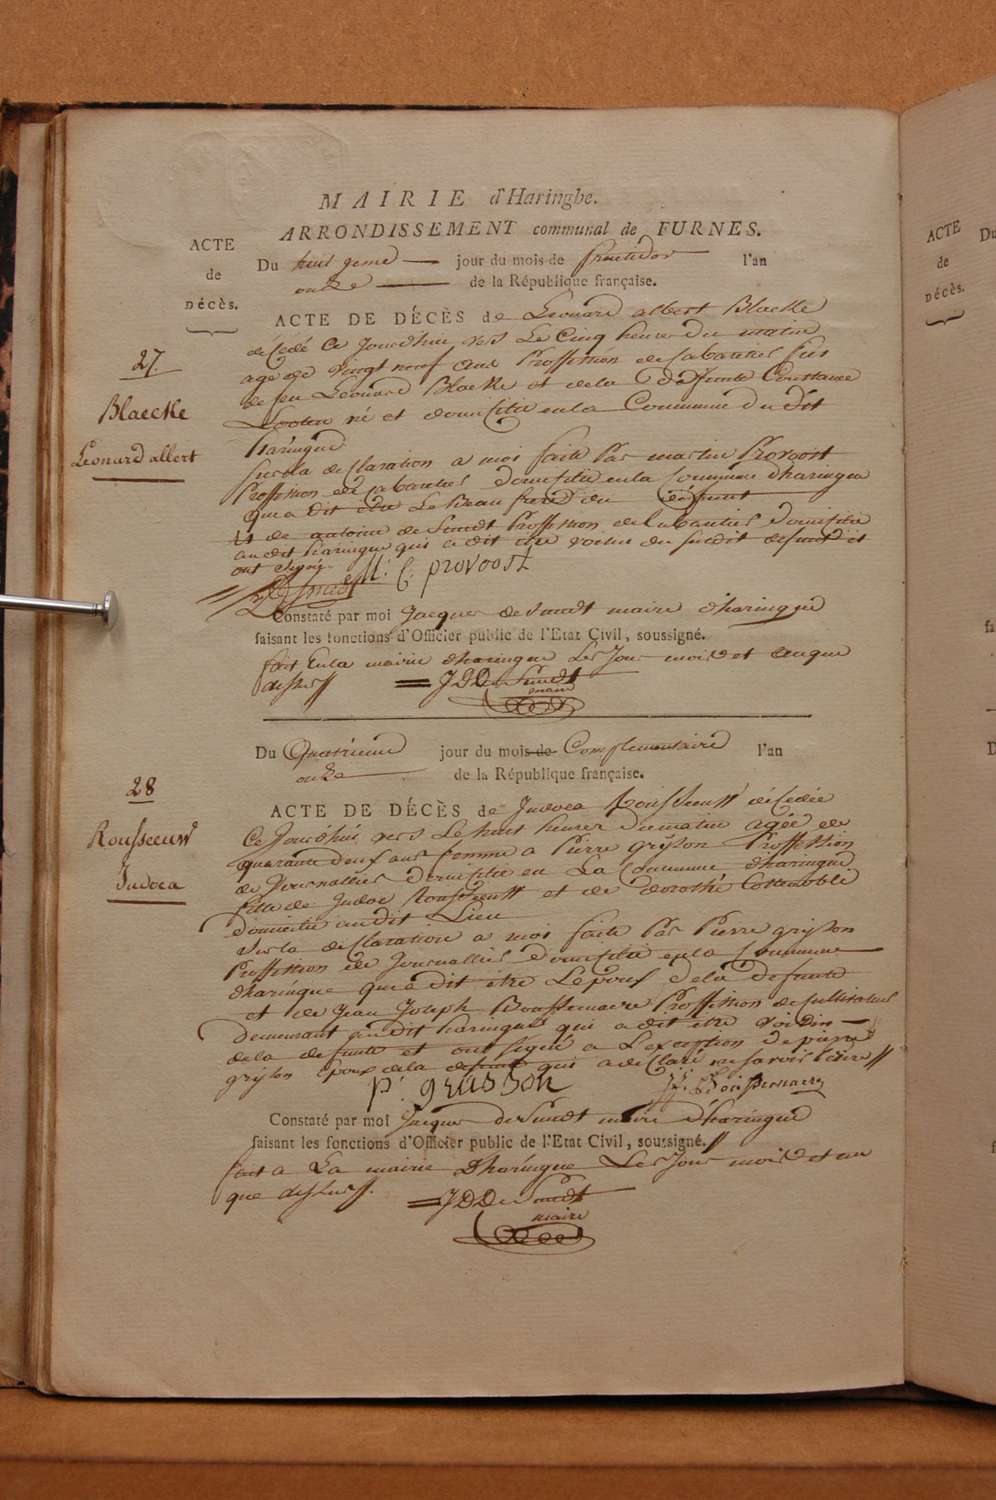 MAIRIE d'Haringhe.
ARRONDISSEMENT communal de FURNES.
ACTE
de
DÉCÈS.
Du huit jeme jour du mois de fructidor l'an
onze de la République française.
27.
Blaecke
Leonard albert
ACTE DE DÉCÈS de Leonard albert Blaecke
décédé Ce Jourdhui vers Le Cinq heure du matin
agé de vingt neuf ans Proffession de Cabaretier fils
de feu Leonard Blaecke et de la Défunte Constance
né et domicilie en la Commune Du dit
haringue
Sur la declaration a moi faite Par martin Provoost
Proffession de Cabaretier Domicilie en la Commune dharingue
qui a dit etre Le Beau frere du défunt
Et de antoine de Smidt Proffession de Domicilie
au dit haringue qui a dit etre voisin du susdit defunt et
ont signé
M: C: provoost
Constaté par moi Jacques de Smidt maire dharingue
faisant les fonctions d'Officier public de l'Etat Civil, soussigné.
fait En la mairie dharingue Les Jour mois et an que
dessus
JDDe Smidt
maire
Du Quatrieme jour du mois de Complementaire l'an
onze de la République française.
28
Rousseeuw
Judoca
ACTE DE DÉCÈS de Judoca Rousseeuw décédée
Ce Jourdhui vers Le huit heures du matin agée de
quarante deux ans femme a Pierre gryson Proffession
de Journallier Domicilie en La Commune dharingue
fille de Judoc Rousseeuw et de dorothé Costenoble
domicilie au dit Lieu
Sur la declaration a moi faite Par Pierre gryson
Proffession de Journallier Domicilie en la Commune
dharingue qui a dit etre Lepoux de la defunte
et de Jean Joseph Proffession de Cultivateur
demeurant au dit haringue qui a dit etre voisin
de la defunte et ont signé a Lexception de pierre
gryson Epoux de la defunte qui a declaré ne savoir
p. grusson
Constaté par moi Jacques de Smidt maire dharingue
faisant les fonctions d'Officier public de l'Etat Civil, soussigné.
fait a La mairie Dharingue Les Jour mois et an
que dessus
JDDe Smidt
maire
ACTE
de
DÉCÈS.
Du